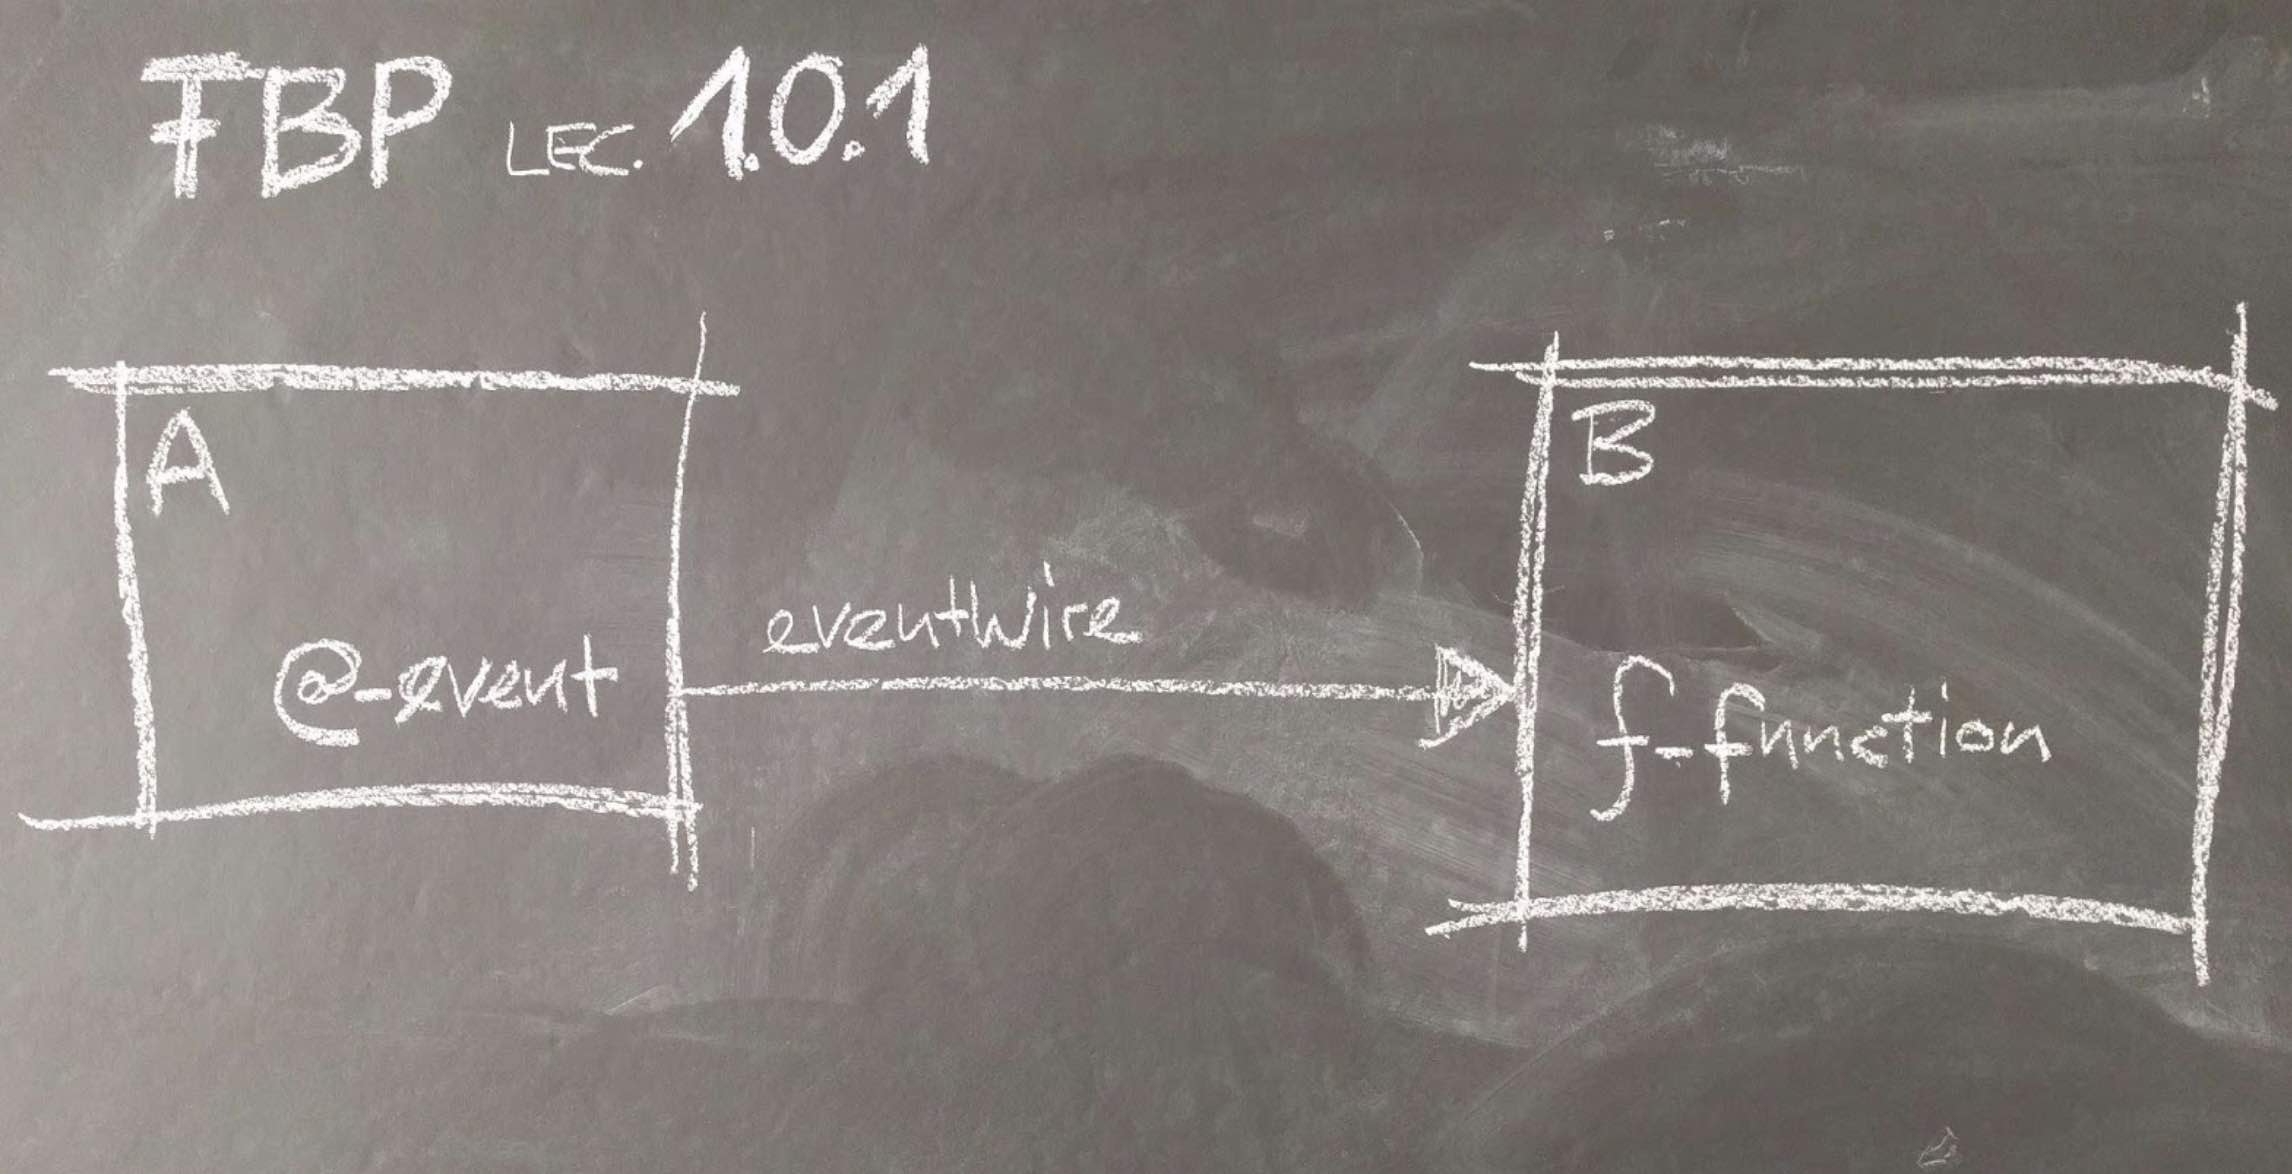 FBP LEC. 1.0.1
A
@-event
eventwire
B
f-function